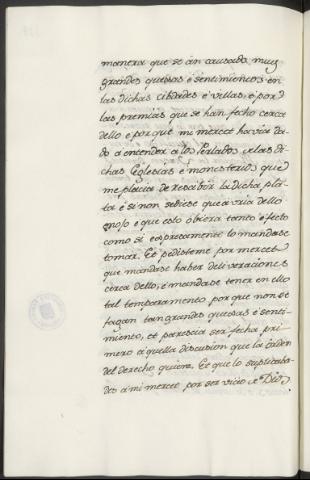 manera que se án causado muy
grandes quexas é sentimientos en
las dichas cibdades é villas, é por
las premias que se han fecho cerca
dello é porque mi merced havia da-
do á entender á los Perlados é las di-
chas Eglesias é monesterios que
me placia de resabir la dicha pla-
ta é si non sediese que avria dello
enojo é que esto obiera tanto efecto
como si espresamente lo mandase
tomar. Et pedisteme por merced
que mandase haber deliveraciones
cerca dello, é mandase tener en ello
tal temparamento, porque non se
fagan tan grandes quexas é senti-
miento, et parescia ser fecha pri-
mero aquella discusion que la orden
del derecho quiere. Et que lo suplicaba-
des á mi merced por servicio de Dios